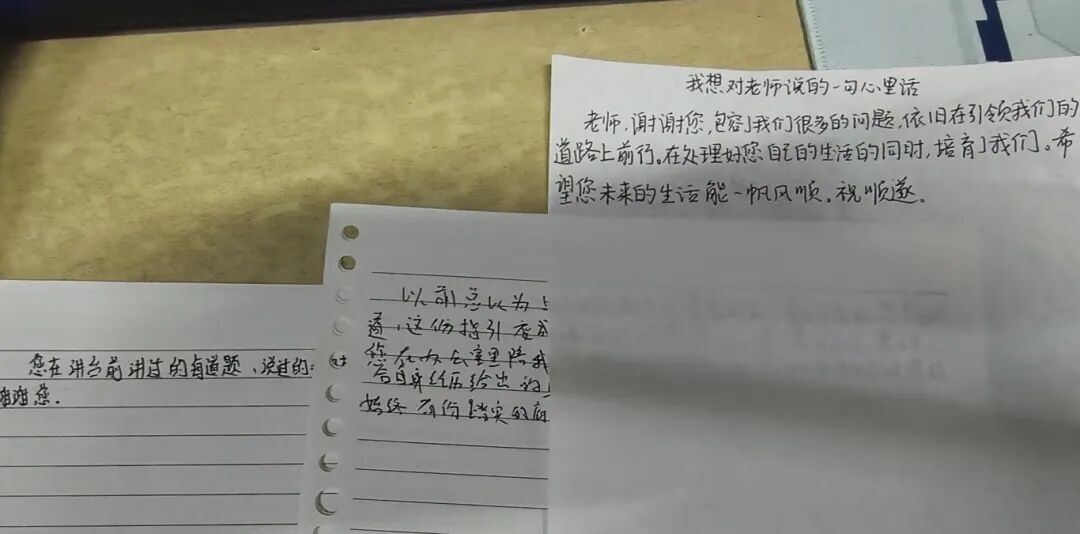 我想对老师说的一句心里话
老师,谢谢您,包容了我们很多的问题,依旧在引领我们的
道路上前行。在处理好您自己的生活的同时,培育了我们。希
望您未来的生活能一帆风顺。祝顺遂。
以前总以为
道,这份指引
您在办公室里陪我
合自身经历给出
始终有份踏实的
您在讲台前讲过的每道题、说过的
谢谢您。